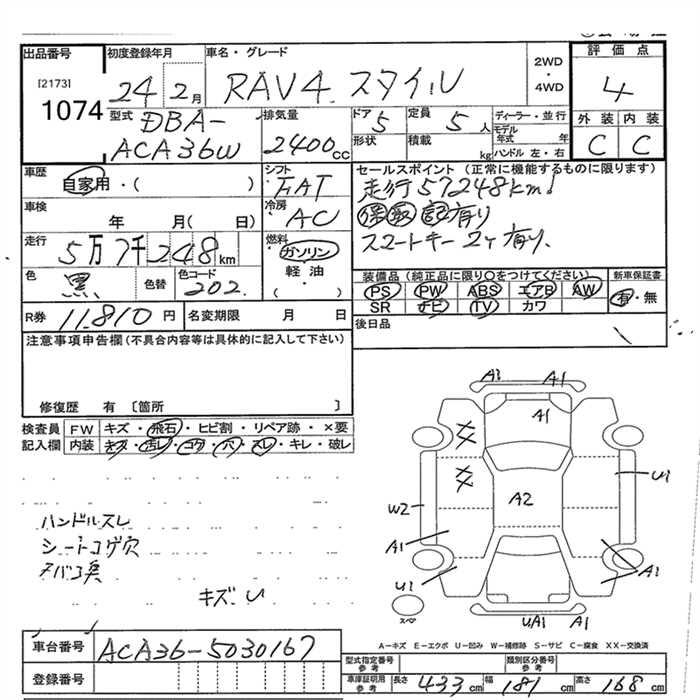 出品番号
[2173]
1074
初度登録年月
24 2月
車名・グレード
RAV4 スタイル
2WD
・
4WD
評価点
4
外装 内装
C C
型式
DBA-
ACA36W
排気量
2400cc
ドア 5
形状
定員 5人
積載 kg
ディーラー・並行
モデル年式 年
ハンドル 左・右
車歴
自家用・( )
シフト
FAT
車検
年 月( 日)
冷房
AC
走行
5万7千248km
燃料
ガソリン
軽油
( )
色
黒
色替
色コード
202
R券 11,810円
名変期限 月 日
セールスポイント (正常に機能するものに限ります)
走行57248km!
保取記有り
スマートキー2ヶ有り、
装備品(純正品に限り○をつけてください)
PS PW ABS エアB AW
SR ナビ TV カワ
新車保証書
有・無
後日品
注意事項申告欄(不具合内容等は具体的に記入して下さい)
修復歴 有〔箇所 〕
検査員
記入欄
FW キズ・飛石・ヒビ割・リペア跡・×要
内装 キズ・汚レ・コゲ・穴・スレ・キレ・破レ
ハンドルスレ
シートコゲ穴
タバコ臭
キズ・U
A1 A1
A1
XX
XX
A2
W2
A1
U1
U1
A1
UA1 A1
スペ
A-キズ E-エクボ U-凹み W-補修跡 S-サビ C-腐食 XX-交換済
車台番号 ACA36-5030167
登録番号
型式指定番号
参考
類別区分番号
参考
車庫証明用
参考
長さ 433cm 幅 181cm 高さ 168cm